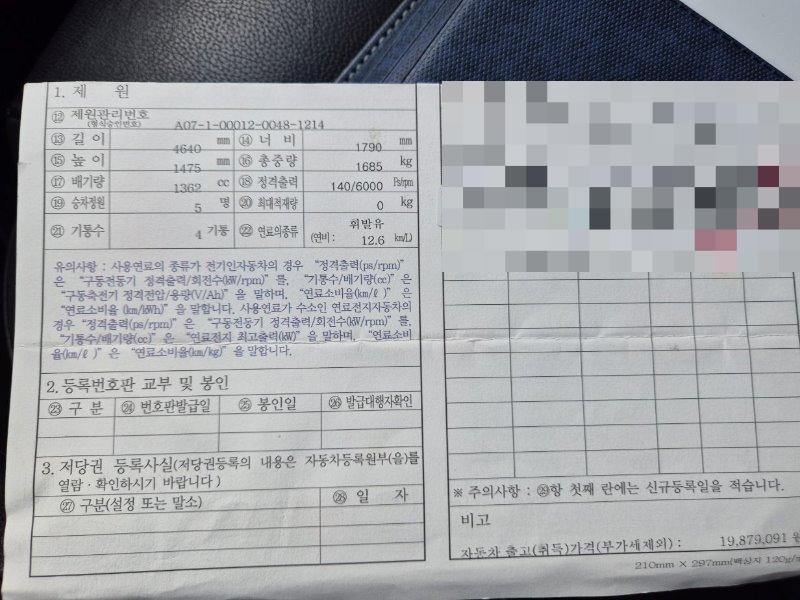 1. 제 원
⑫ 제원관리번호 (형식승인번호) A07-1-00012-0048-1214
⑬ 길이 4640 mm ⑭ 너비 1790 mm
⑮ 높이 1475 mm ⑯ 총중량 1685 kg
⑰ 배기량 1362 cc ⑱ 정격출력 140/6000 Ps/rpm
⑲ 승차정원 5 명 ⑳ 최대적재량 0 kg
㉑ 기통수 4 기통 ㉒ 연료의종류 휘발유
(연비: 12.6 km/L)
유의사항 : 사용연료의 종류가 전기인자동차의 경우 “정격출력(ps/rpm)”
은 “구동전동기 정격출력/회전수(kW/rpm)”를, “기통수/배기량(cc)”은
“구동축전기 정격전압/용량(V/Ah)”을 말하며, “연료소비율(km/ℓ)”은
“연료소비율 (km/kWh)”을 말합니다. 사용연료가 수소인 연료전지자동차의
경우 “정격출력(ps/rpm)”은 “구동전동기 정격출력/회전수(kW/rpm)”를,
“기통수/배기량(cc)”은 “연료전지 최고출력(kW)”을 말하며, “연료소비
율(km/ℓ)”은 “연료소비율(km/kg)”을 말합니다.
2. 등록번호판 교부 및 봉인
㉓ 구 분 ㉔ 번호판발급일 ㉕ 봉인일 ㉖ 발급대행자확인
3. 저당권 등록사실(저당권등록의 내용은 자동차등록원부(을)를
열람·확인하시기 바랍니다)
㉗ 구분(설정 또는 말소) ㉘ 일 자
※ 주의사항 : ㉙항 첫째 란에는 신규등록일을 적습니다.
비고
자동차 출고(취득)가격(부가세제외) : 19,879,091 원
210mm × 297mm(백상지 120g/